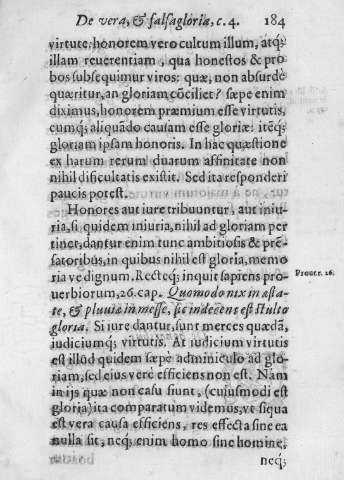 De vera, & falsa gloria, c. 4. 184
virtute: honorem vero cultum illum, atq;
illam reuerentiam, qua honestos & pro
bos subsequimur viros: quæ, non absurdè
quæritur, an gloriam cōciliet? sæpe enim
diximus, honorem præmium esse virtutis,
cumq; aliquādo causam esse gloriæ: itēq;
gloriam ipsam honoris. In hac quæstione
ex harum rerum duarum affinitate non
nihil dificultatis existit. Sed ita responderi
paucis potest.
Honores aut iure tribuuntur, aut iniu-
ria, si quidem iniuria, nihil ad gloriam per
tinet, dantur enim tunc ambitiosis & prē-
satoribus, in quibus nihil est gloria, memo
ria ve dignum. Recteq; inquit sapiens pro
uerbiorum, 26. cap. Quomodo nix in æsta-
te, & pluuia in messe, sic indecens est stulto
gloria. Si iure dantur, sunt merces quædā,
iudiciumq; virtutis. At iudicium virtutis
est illud quidem sæpè adminiculo ad glo-
riam, sed eius verè efficiens non est. Nam
in ijs quæ non casu fiunt, (cuiusmodi est
gloria) ita comparatum videmus, vt siqua
est vera causa efficiens, res effecta sine ea
nulla sit, neq; enim homo sine homine,
neq;
Prouer. 26.